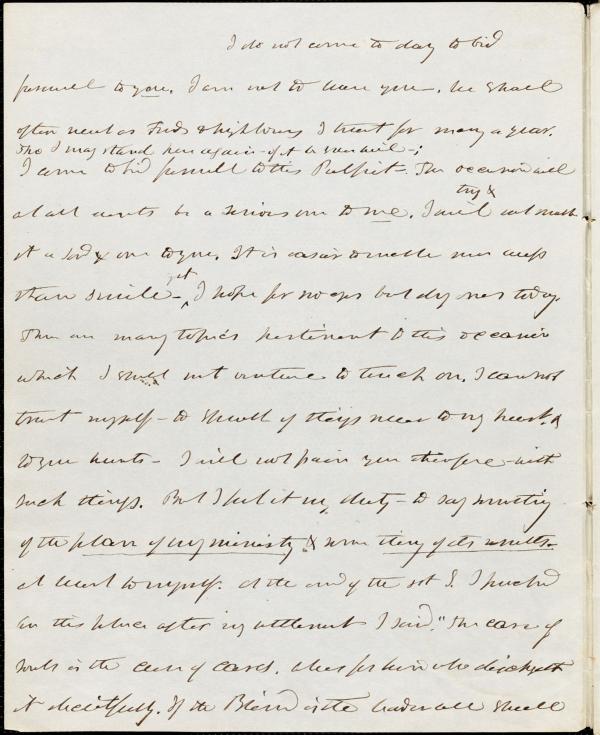 I do not come to day to bid
farewell to you. I am not to leave you. We shall
often meet as Friends & neighbours I trust for many a year.
Tho I may stand here again - if it be your will -;
I come to bid farewell to this Pulpit - The occasion will
at all events be a serious one to me. I will not try & make
it a sad one to you. It is easier to make men weep
than smile - yet I hope for no eyes but dry ones today.
There are many topics pertinent to this occasion
which I should not venture to touch on. I cannot
trust myself - to speak of things near to my heart &
to your hearts - I will not pain you therefore with
such things. But I feel it my duty - to say something
of the plan of my ministry & some thing of its results.
at least to myself. At the end of the 1st S. I preached
in this place after my settlement I said, "The care of
souls is the care of cares. alas for him who dischargeth
it deceitfully. If the Blind is the leader all shall